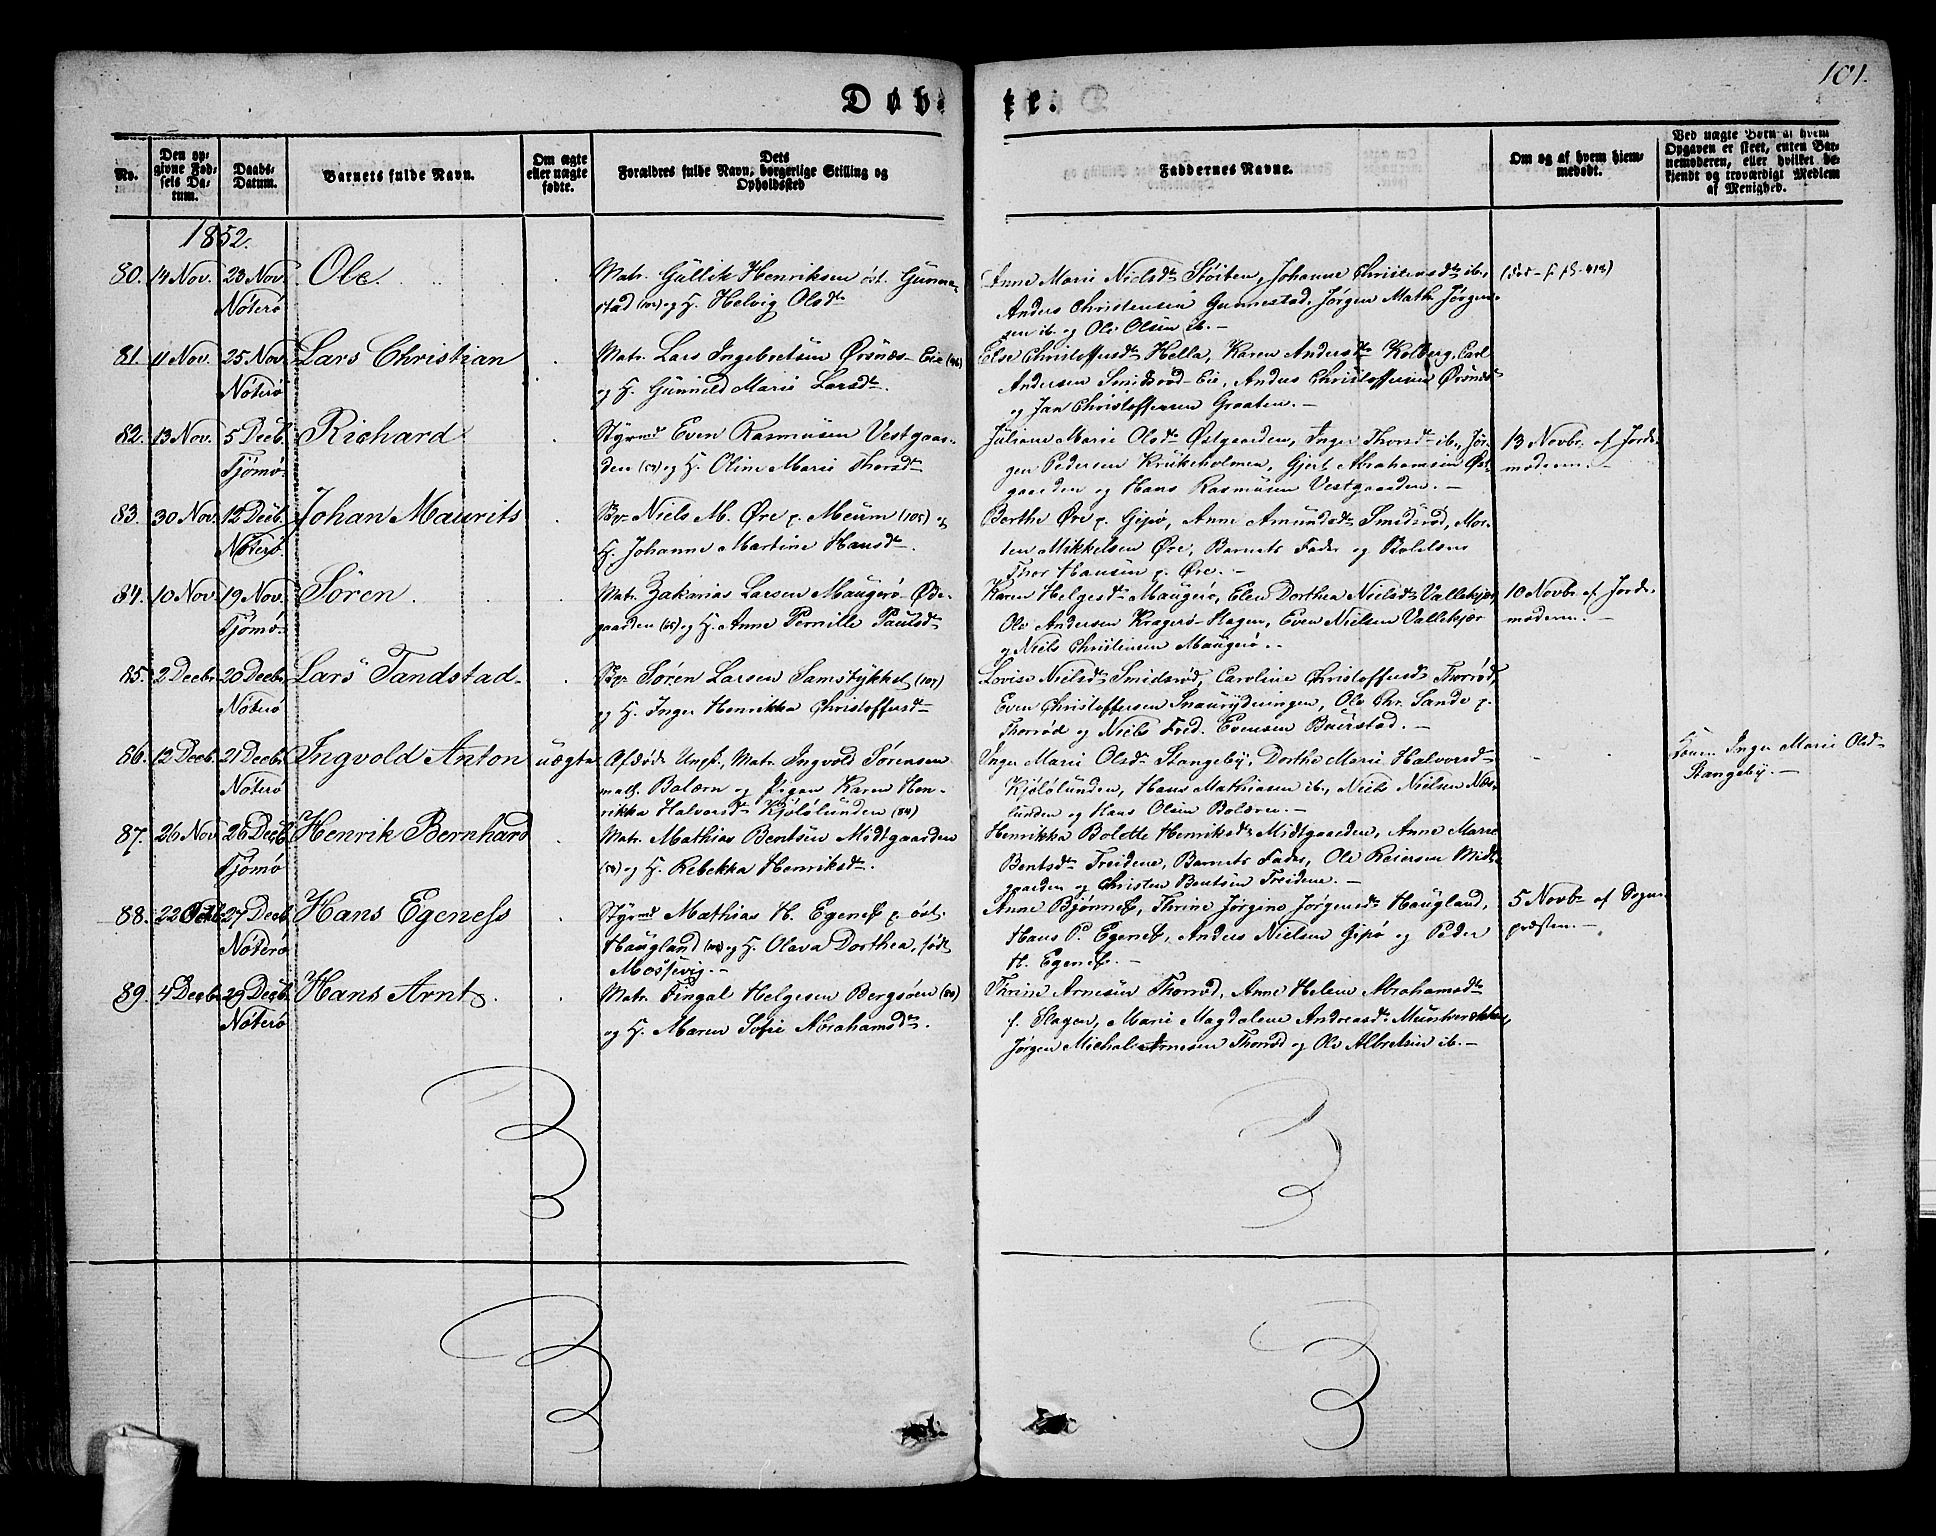 Døbte.
101.
No.
Den opgivne Fødsels Datum.
Daabs-Datum.
Barnets fulde Navn.
Om ægte eller uægte fødte.
Dets Forældres fulde Navn, borgerlige Stilling og Opholdssted
Faddernes Navne.
Om og af hvem hjemmedøbt.
Ved uægte Børn af hvem Opgaven er skeet, enten Barnemoderen, eller hvilket bekjendt og troværdigt Medlem af Menighed.
1852.
80. 14 Nov. 23 Nov. Nøterø Ole
Matr. Gullik Henriksen øst. Gunne-
stad og H. Helvig Olsdtr
Anne Marie Nielsdtr Støiten, Johanne Christensdtr ib.,
Anders Christensen Gunnestad, Jørgen Math. Jørgen-
sen ib. og Ole Olsen ib.—
81. 11 Nov. 25 Nov. Nøterø Lars Christian
Matr. Lars Ingebretsen Ørsnæs-Eie
og H. Gunnild Marie Larsdtr.
Else Christoffersdtr Hella, Karen Andersdtr Kolberg, Carl
Andersen Smidsrød-Eie, Anders Christoffersen Ørsnæs
og Jan Christoffersen Graaten.—
82. 13 Nov. 5 Decb. Tjømø Richard
Styrmd Even Rasmusen Vestgaar-
den og H. Oline Marie Thorsdtr
Juliane Marie Olsdtr Østgaarden, Inger Thorsdtr ib., Jør-
gen Pedersen Krukeholmen, Gjert Abrahamsen Øst-
gaarden og Hans Rasmusen Vestgaarden.—
13 Novbr. af Jorde-
moderen.—
83. 30 Nov. 12 Decb. Nøterø Johan Maurits
Niels M. Øre p. Meum (105) og
H. Johanne Martine Hansdtr.
Berthe Øre p. Gipø, Anne Amundsdtr Smidsrød, Mor-
ten Mikkelsen Øre, Barnets Fader og
Thor Hansen p. Øre.—
84. 10 Nov. 19 Nov. Tjømø Søren
Matr. Zakarias Larsen Maugerø-Øde-
gaarden og H. Anne Pernille Paulsdtr
Karen Helgesdtr Maugerø, Elen Dorthea Nielsdtr Vallekjær,
Ole Andersen Kragerø-Hagen, Even Nielsen Vallekjær
og Niels Christensen Maugerø.
10 Novbr. af Jorde-
moderen.—
85. 2 Decbr. 20 Decbr. Nøterø Lars Tandstad
Søren Larsen Samstykket (101)
og H. Inger Henrikka Christoffersdtr
Lovise Nielsdtr Smidsrød, Caroline Christoffersdtr Thorrød,
Even Christoffersen Snaurydningen, Ole Chr. Sande p.
Thorrød og Niels Fred. Evensen Buerstad.—
86. 12 Decb. 21 Decbr. Nøterø Ingvold Anton uægte
Afskede Ungk., Matr. Ingvold Sørensen
Bolærn og Pigen Karen Hen-
rikka Halvorsdtr Kjølølunden (84)
Inger Marie Olsdtr Stangeby, Dorthe Marie Halvorsdtr
Kjølølunden, Hans Mathiasen ib., Niels Nielsen Næs-
lunden og Hans Olsen Bolærn.—
Inger Marie Olsdtr
Stangeby.—
87. 26 Nov. 26 Decb. Tjømø Henrik Bernhard
Matr. Mathias Bentsen Midtgaarden
og H. Rebekka Henriksdtr.
Henrikka Bolette Henriksdtr Midtgaarden, Anne Marie
Bentsdtr Treidene, Barnets Fader, Ole Reiersen Midt-
gaarden og Christen Bentsen Treidene.—
88. 22 Octb. 27 Decb. Nøterø Hans Egeness
Styrmd Mathias H. Egeness p. øst.
Haugland og H. Olava Dorthea, født
Mossevig.—
Anne Bjønness, Thrine Jørgine Jørgensdtr Haugland,
Hans P. Egeness, Anders Nielsen Gipø og Peder
H. Egeness.—
5 Novbr. af Sogne-
præsten.—
89. 4 Decbr. 29 Decb. Nøterø Hans Arnt
Matr. Fingal Helgesen Bergsøen
og H. Maren Sofie Abrahamsdtr.
Thrine Arnesen Thorrød, Anne Helene Abrahamsdtr
f. Slagen, Marie Magdalene Andreasdtr Munkerekken,
Jørgen Michal Arnesen Thorrød og Ole Albretsen ib.—